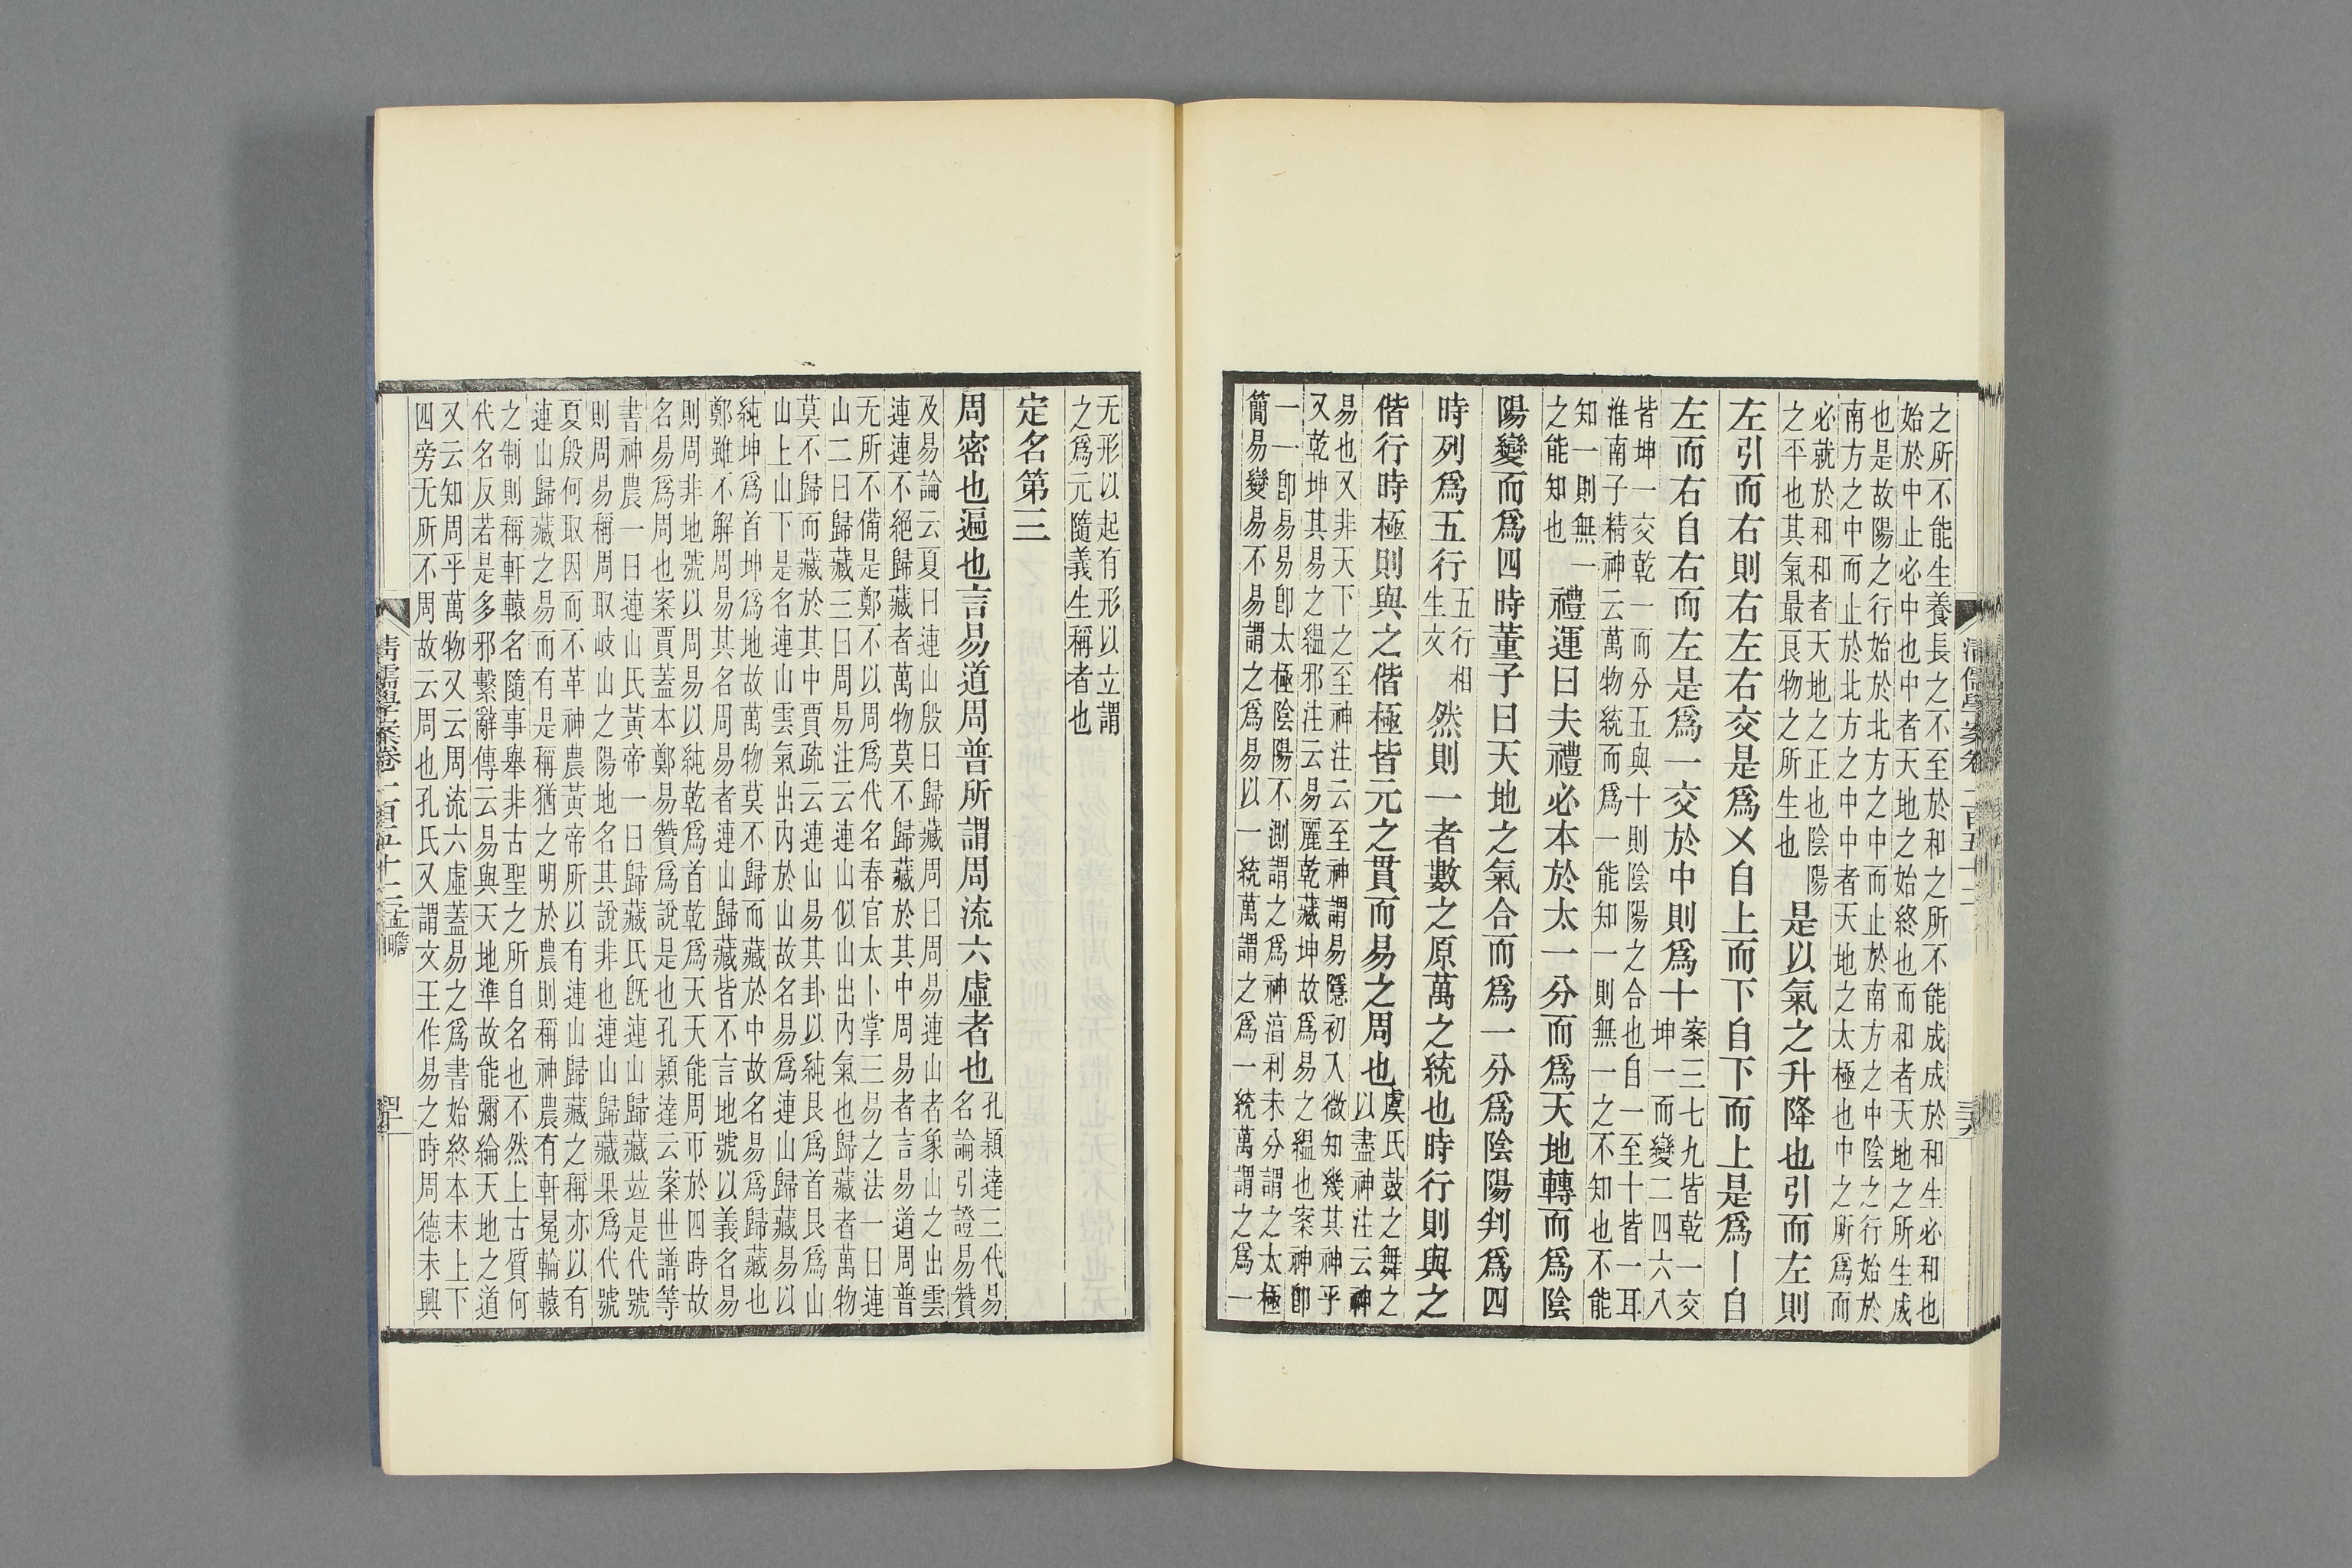 清儒學案卷一百五十二
之所不能生養長之不至於和之所不能成成於和生必和也
始於中止必中也中者天地之始終也而和者天地之所生成
也是故陽之行始於北方之中而止於南方之中陰之行始於
南方之中而止於北方之中中者天地之太極也中之所爲而
必就於和和者天地之正也陰陽
之平也其氣最良物之所生也
是以氣之升降也引而左則
左引而右則右左右交是爲㐅自上而下自下而上是爲丨自
左而右自右而左是爲一交於中則爲十
案三七九皆乾一交
坤一而變二四六八
皆坤一交乾一而分五與十則陰陽之合也自一至十皆一耳
淮南子精神云萬物統而爲一能知一則無一之不知也不能
知一則無一
之能知也
禮運曰夫禮必本於太一分而爲天地轉而爲陰
陽變而爲四時董子曰天地之氣合而爲一分爲陰陽判爲四
時列爲五行
五行相
生交
然則一者數之原萬之統也時行則與之
偕行時極則與之偕極皆元之貫而易之周也
虞氏鼓之舞之
以盡神注云神
易也又非天下之至神注云至神謂易隱初入微知幾其神乎
又乾坤其易之緼邪注云易麗乾藏坤故爲易之緼也案神卽
一一卽易易卽太極陰陽不測謂之爲神湻利未分謂之太極
簡易變易不易謂之爲易以一統萬謂之爲一統萬謂之爲一
无形以起有形以立謂
之爲元隨義生稱者也
定名第三
周密也遍也言易道周普所謂周流六虛者也
孔穎達三代易
名論引證易贊
及易論云夏曰連山殷曰歸藏周曰周易連山者象山之出雲
連連不絕歸藏者萬物莫不歸藏於其中周易者言易道周普
无所不備是鄭不以周爲代名春官太卜掌三易之法一曰連
山二曰歸藏三曰周易注云連山似山出內氣也歸藏者萬物
莫不歸而藏於其中賈疏云連山易其卦以純艮爲首艮爲山
山上山下是名連山雲氣出內於山故名易爲連山歸藏易以
純坤爲首坤爲地故萬物莫不歸而藏於中故名易爲歸藏也
鄭雖不解周易其名周易者連山歸藏皆不言地號以義名易
則周非地號以周易以純乾爲首乾爲天天能周帀於四時故
名易爲周也案賈蓋本鄭易贊爲說是也孔穎達云案世譜等
書神農一曰連山氏黃帝一曰歸藏氏旣連山歸藏竝是代號
則周易稱周取岐山之陽地名其說非也連山歸藏果爲代號
夏殷何取因而不革神農黃帝所以有連山歸藏之稱亦以有
連山歸藏之易而有是稱猶之明於農則稱神農有軒冕輪轅
之制則稱軒轅名隨事舉非古聖之所自名也不然上古質何
代名反若是多邪繫辭傳云易與天地準故能彌綸天地之道
又云知周乎萬物又云周流六虛蓋易之爲書始終本末上下
四旁无所不周故云周也孔氏又謂文王作易之時周德未興
清儒學案卷一百五十二 孟瞻